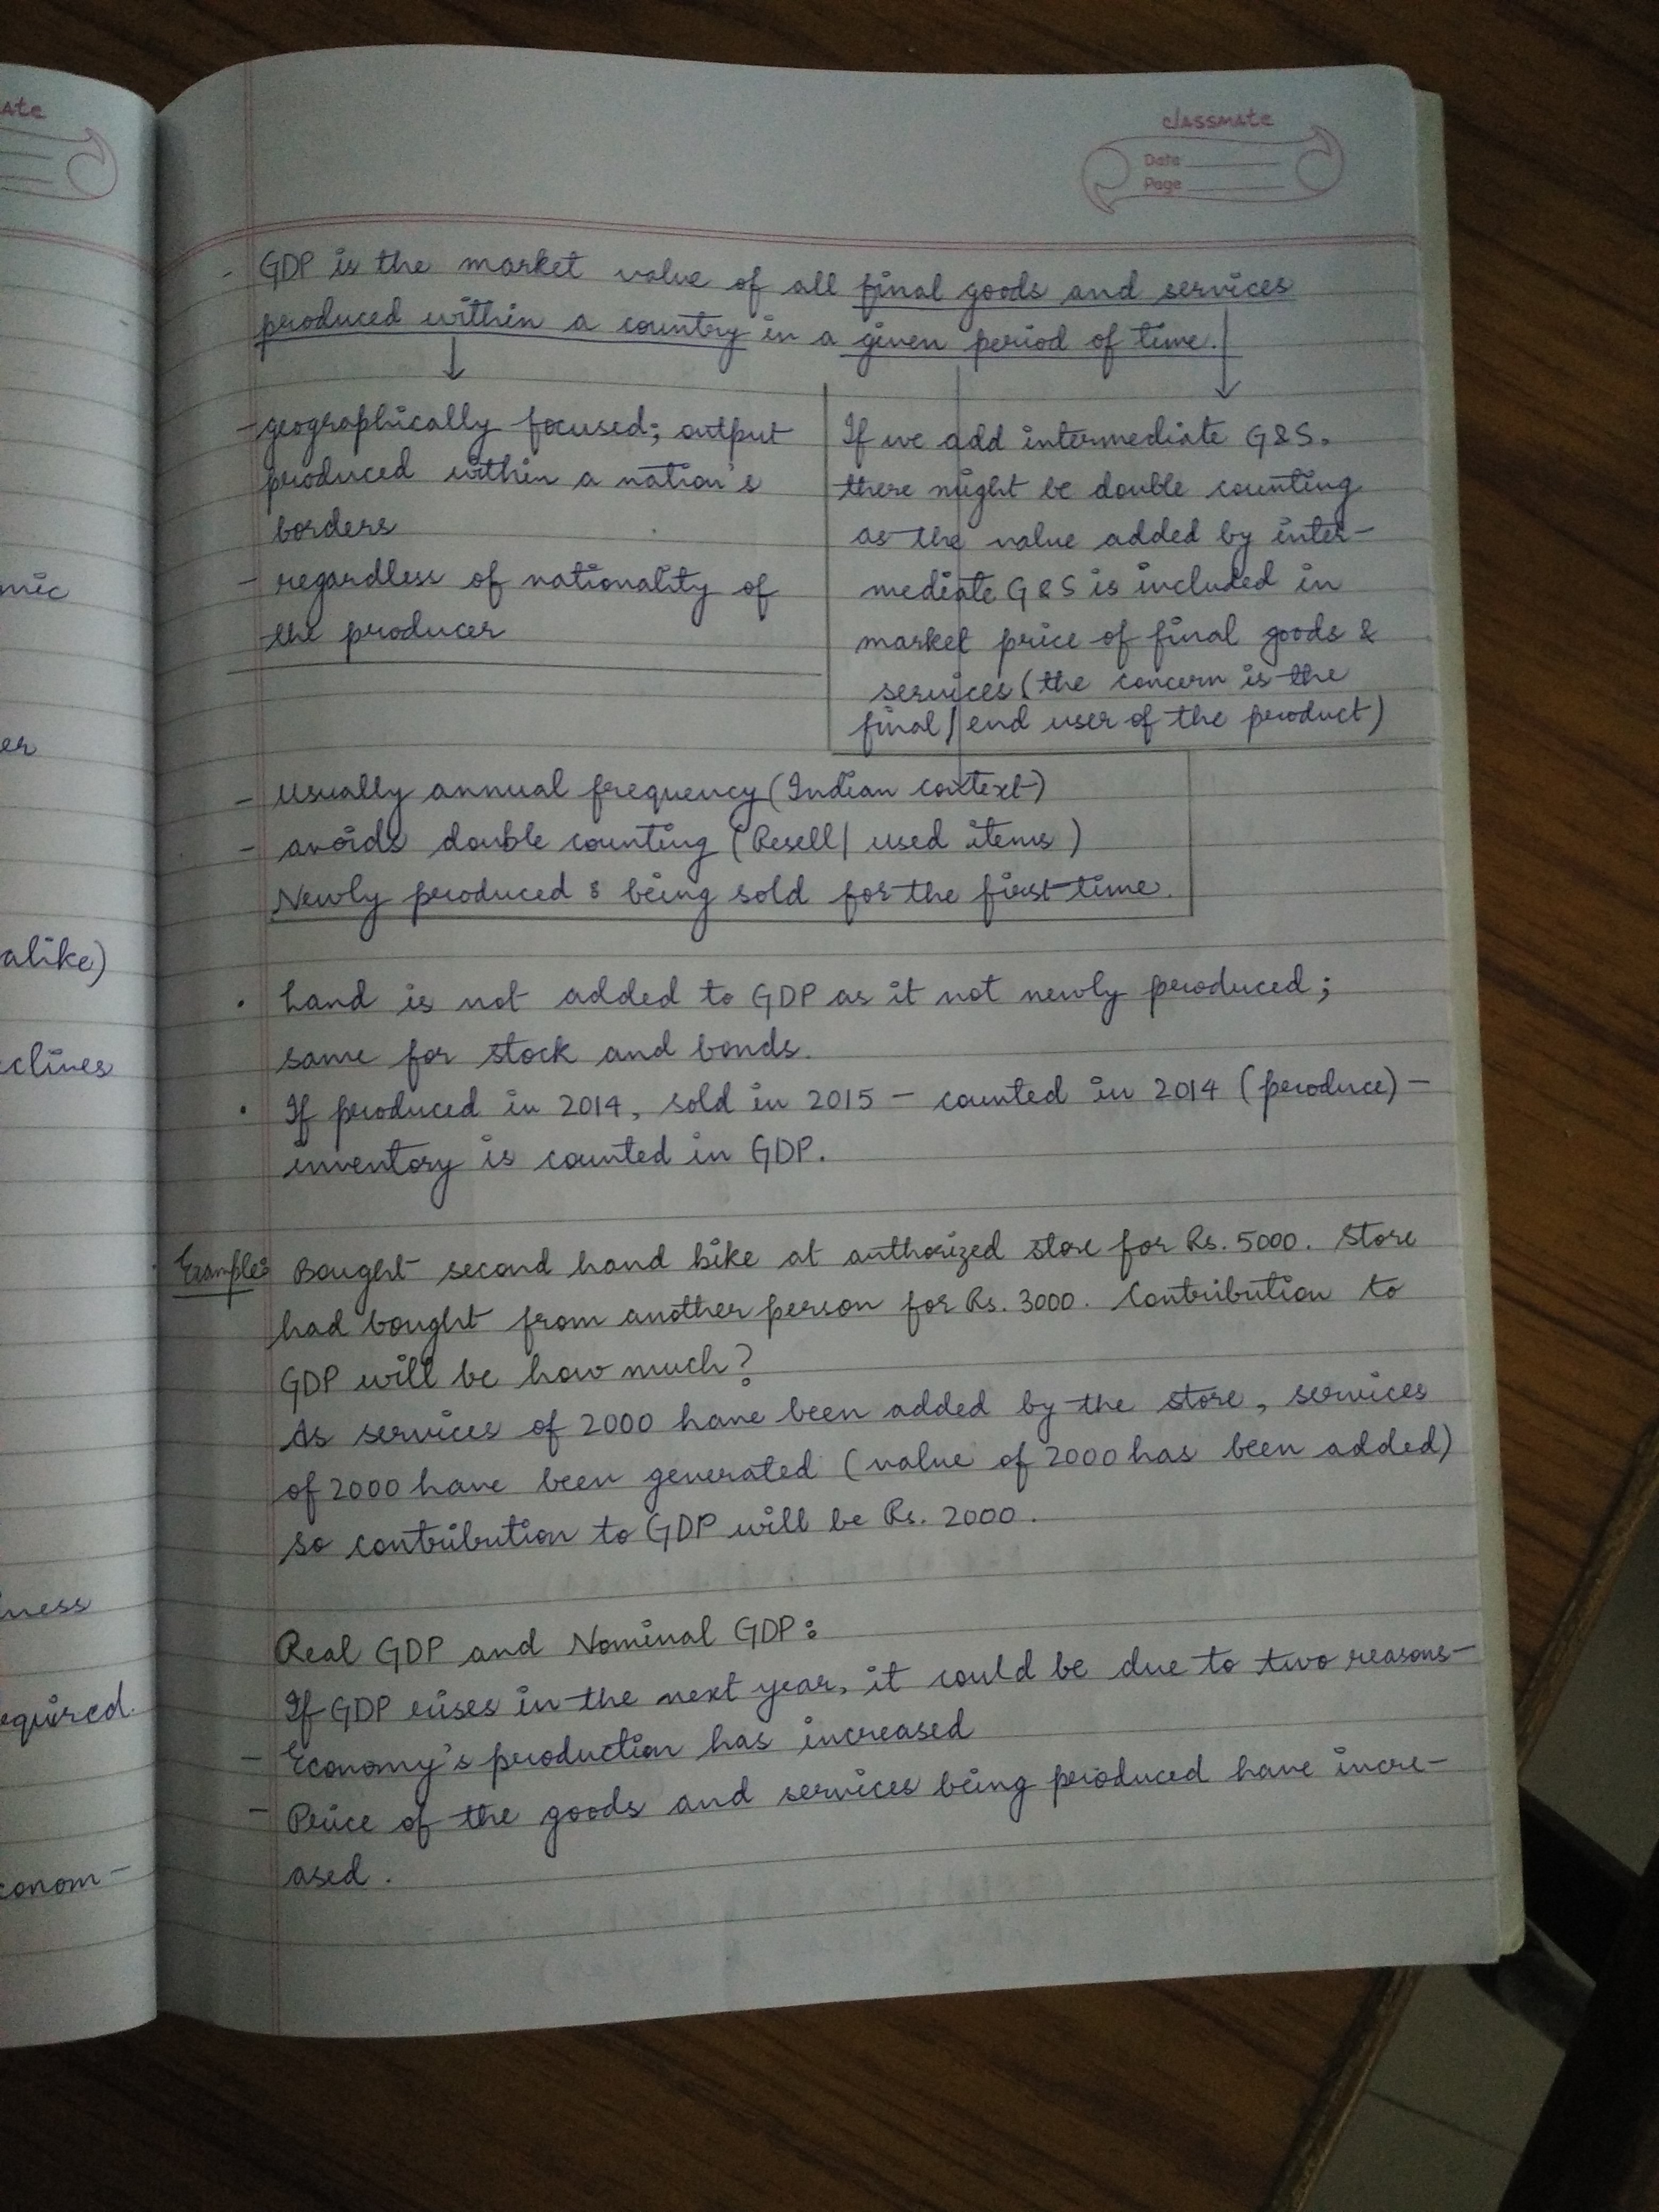 Ate
mic
er
alike)
clines
ness
equired.
conom-
classmate
Date
Page
- GDP is the market value of all final goods and services
produced within a country in a given period of time.
- geographically focused; output
produced within a nation's
borders
- regardless of nationality of
the producer
If we add intermediate G&S.
there might be double counting
as the value added by inter-
mediate G & S is included in
market price of final goods &
services (the concern is the
final/end user of the product)
- Usually annual frequency (Indian context)
- avoids double counting (Resell/ used items)
Newly produced & being sold for the first time.
• Land is not added to GDP as it not newly produced;
same for stock and bonds.
• If produced in 2014, sold in 2015 - counted in 2014 (produce) -
inventory is counted in GDP.
Example: Bought second hand bike at authorized store for Rs. 5000. Store
had bought from another person for Rs. 3000. Contribution to
GDP will be how much?
As services of 2000 have been added by the store, services
of 2000 have been generated (value of 2000 has been added)
so contribution to GDP will be Rs. 2000.
Real GDP and Nominal GDP:
If GDP rises in the next year, it could be due to two reasons-
- Economy's production has increased
- Price of the goods and services being produced have incre-
ased.